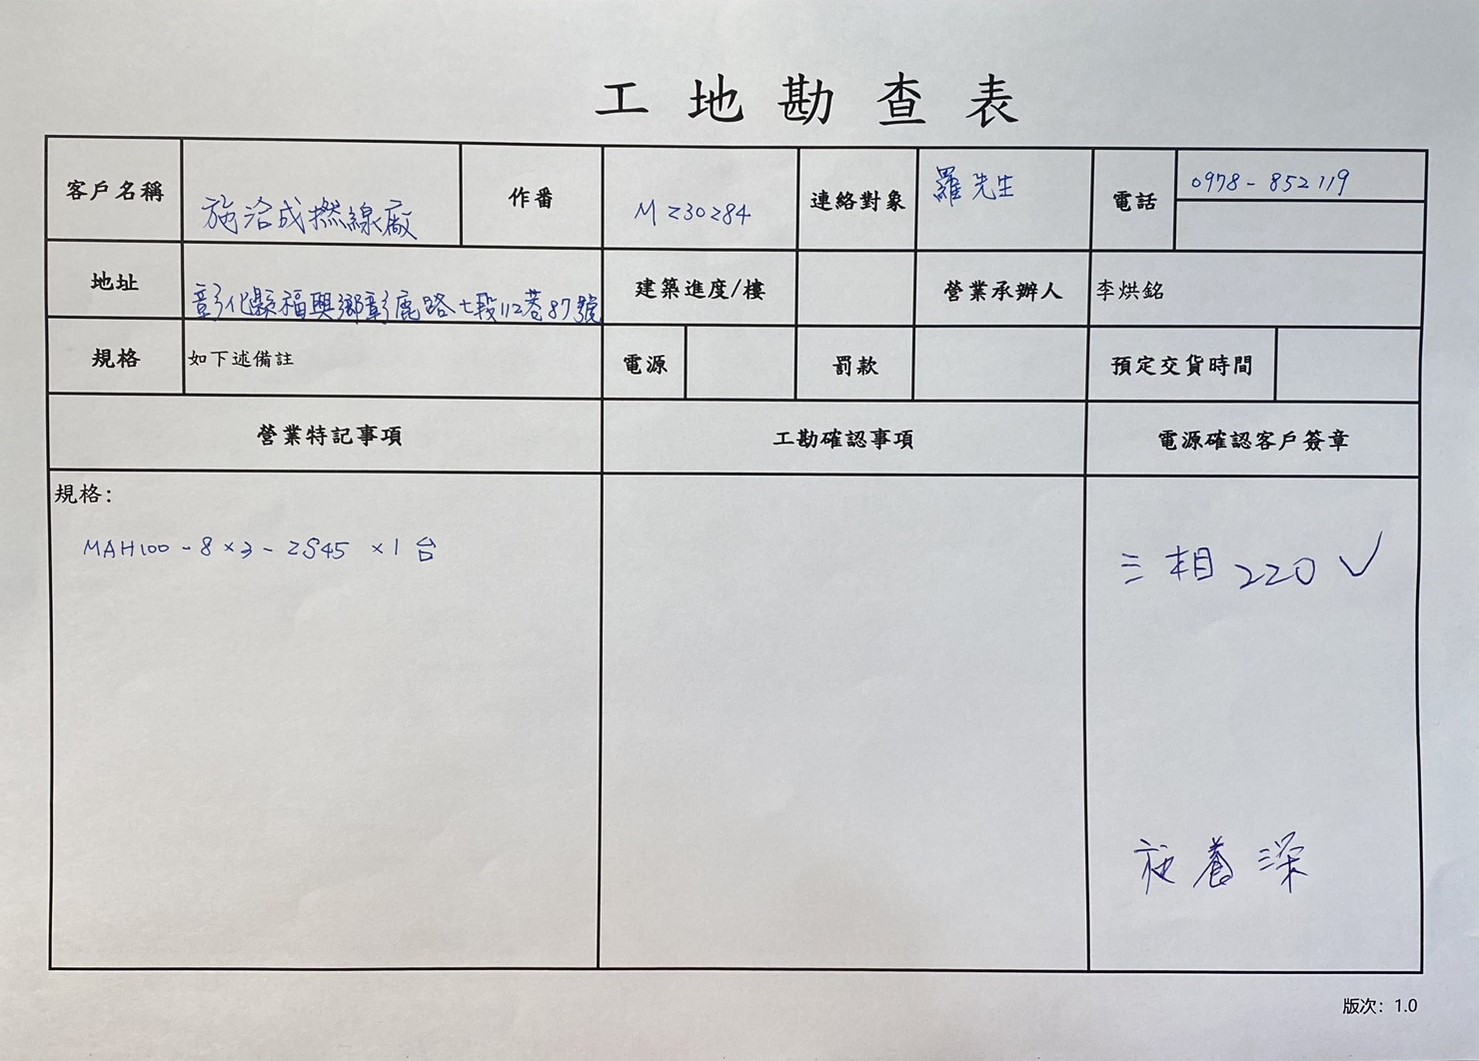 工地勘查表
客戶名稱 施洽成撚線廠 作番 MZ30284 連絡對象 羅先生 電話 0978-852119
地址 彰化縣福興鄉彰鹿路七段112巷87號 建築進度/樓 營業承辦人 李烘銘
規格 如下述備註 電源 罰款 預定交貨時間
營業特記事項 工勘確認事項 電源確認客戶簽章
規格:
MAH100-8×3-2S45 ×1台
三相220V
施養深
版次: 1.0